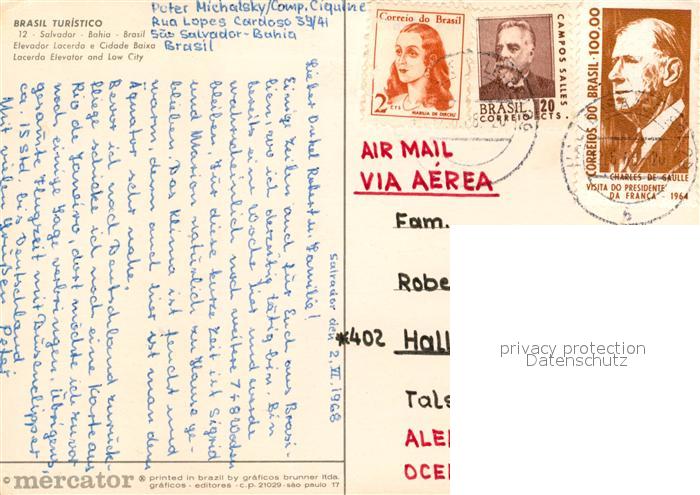 BRASIL TURÍSTICO
12 - Salvador - Bahia - Brasil
Elevador Lacerda e Cidade Baixa
Lacerda Elevator and Low City
Peter Michalsky/Comp. Ciquine
Rua Lopes Cardoso 39/41
São Salvador-Bahia
Brasil
Salvador den 2.VI.1968
Lieber Onkel Robert u. Familie!
Einige Zeilen auch für Euch aus Brasi-
lien, wo ich derzeitig tätig bin. Bin
bereits eine Woche hier und werde
wahrscheinlich noch weitere 7-8 Wochen
bleiben. Für diese kurze Zeit ist Sigrid
und Marion natürlich zu Hause ge-
blieben. Das Klima ist feucht und
warm, denn auch hier ist man dem
Äquator sehr nahe.
Bevor ich nach Deutschland zurück-
fliege schicke ich noch eine Karte aus
Rio de Janeiro, dort möchte ich zuvor
noch einige Tage verbringen. Übrigens,
gesamte Flugzeit mit Düsenclipper
ca. 15 Std. bis Deutschland
Mit vielen Grüßen Peter
Correio do Brasil
2 CTS
MARILIA DE DIRCEU
CAMPOS SALLES
BRASIL 20
CORREIO CTS.
CORREIOS DO BRASIL 100,00
CHARLES DE GAULLE
VISITA DO PRESIDENTE
DA FRANÇA - 1964
6
AIR MAIL
VIA AÉREA
Fam.
Robe
*402 Hall
Tals
ALE
OCE
privacy protection
Datenschutz
© mercator ® printed in brazil by gráficos brunner ltda.
gráficos - editores - c.p. 21029 - são paulo 17